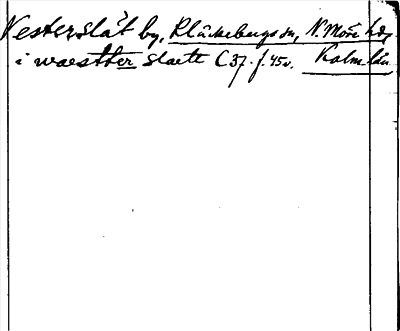 Vesterslät by, Kläckebergs sn, N. Möre hd,
i wæstther slaett C 37. f. 45v. Kalm. län